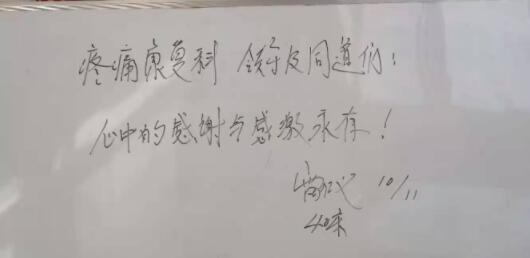 疼痛康复科 领导及同道们:
心中的感谢与感激永存!
10/11